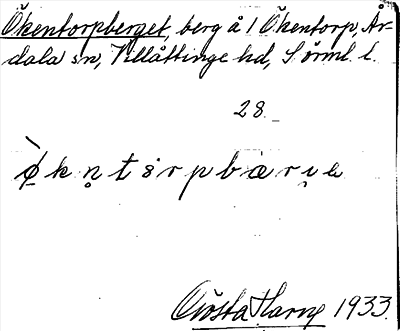 Ökentorpberget, berg å 1 Ökentorp, År-
dala sn, Villåttinge hd, Sörml. l.
28.
Gösta Harng 1933.